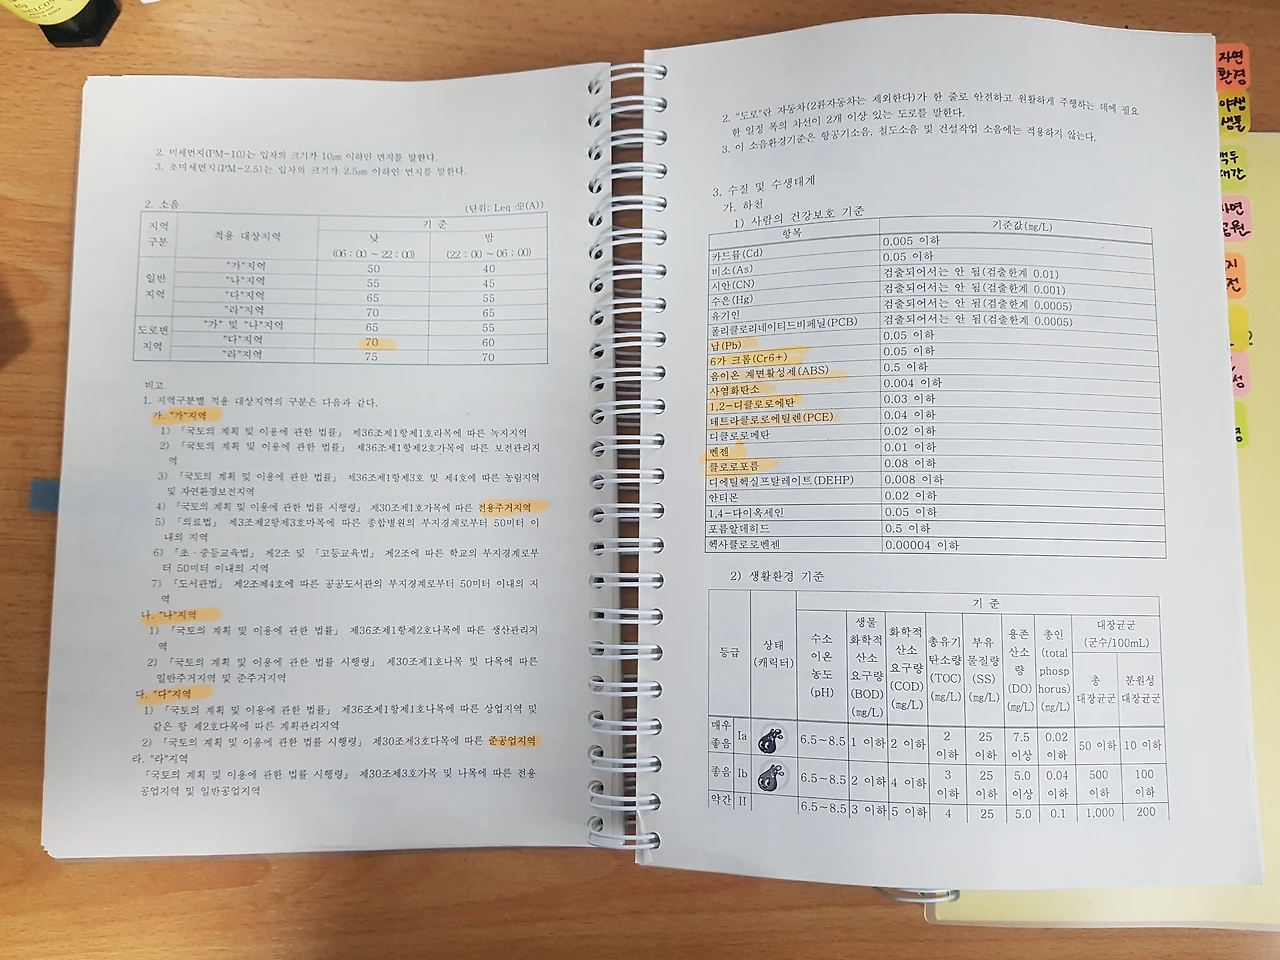 2. 미세먼지(PM-10)는 입자의 크기가 10㎛ 이하인 먼지를 말한다.
3. 초미세먼지(PM-2.5)는 입자의 크기가 2.5㎛ 이하인 먼지를 말한다.
2. 소음 (단위: Leq ㏈(A))
지역 구분 적용 대상지역 기 준
낮 (06:00 ~ 22:00) 밤 (22:00 ~ 06:00)
일반 지역 "가"지역 50 40
"나"지역 55 45
"다"지역 65 55
"라"지역 70 65
도로변 지역 "가" 및 "나"지역 65 55
"다"지역 70 60
"라"지역 75 70
비고
1. 지역구분별 적용 대상지역의 구분은 다음과 같다.
가. "가"지역
1) 「국토의 계획 및 이용에 관한 법률」 제36조제1항제1호라목에 따른 녹지지역
2) 「국토의 계획 및 이용에 관한 법률」 제36조제1항제2호가목에 따른 보전관리지
역
3) 「국토의 계획 및 이용에 관한 법률」 제36조제1항제3호 및 제4호에 따른 농림지역
및 자연환경보전지역
4) 「국토의 계획 및 이용에 관한 법률 시행령」 제30조제1호가목에 따른 전용주거지역
5) 「의료법」 제3조제2항제3호마목에 따른 종합병원의 부지경계로부터 50미터 이
내의 지역
6) 「초ㆍ중등교육법」 제2조 및 「고등교육법」 제2조에 따른 학교의 부지경계로부
터 50미터 이내의 지역
7) 「도서관법」 제2조제4호에 따른 공공도서관의 부지경계로부터 50미터 이내의 지
역
나. "나"지역
1) 「국토의 계획 및 이용에 관한 법률」 제36조제1항제2호나목에 따른 생산관리지
역
2) 「국토의 계획 및 이용에 관한 법률 시행령」 제30조제1호나목 및 다목에 따른
일반주거지역 및 준주거지역
다. "다"지역
1) 「국토의 계획 및 이용에 관한 법률」 제36조제1항제1호나목에 따른 상업지역 및
같은 항 제2호다목에 따른 계획관리지역
2) 「국토의 계획 및 이용에 관한 법률 시행령」 제30조제3호다목에 따른 준공업지역
라. "라"지역
「국토의 계획 및 이용에 관한 법률 시행령」 제30조제3호가목 및 나목에 따른 전용
공업지역 및 일반공업지역
2. "도로"란 자동차(2륜자동차는 제외한다)가 한 줄로 안전하고 원활하게 주행하는 데에 필요
한 일정 폭의 차선이 2개 이상 있는 도로를 말한다.
3. 이 소음환경기준은 항공기소음, 철도소음 및 건설작업 소음에는 적용하지 않는다.
3. 수질 및 수생태계
가. 하천
1) 사람의 건강보호 기준
항목 기준값(㎎/L)
카드뮴(Cd) 0.005 이하
비소(As) 0.05 이하
시안(CN) 검출되어서는 안 됨(검출한계 0.01)
수은(Hg) 검출되어서는 안 됨(검출한계 0.001)
유기인 검출되어서는 안 됨(검출한계 0.0005)
폴리클로리네이티드비페닐(PCB) 검출되어서는 안 됨(검출한계 0.0005)
납(Pb) 0.05 이하
6가 크롬(Cr6+) 0.05 이하
음이온 계면활성제(ABS) 0.5 이하
사염화탄소 0.004 이하
1,2-디클로로에탄 0.03 이하
테트라클로로에틸렌(PCE) 0.04 이하
디클로로메탄 0.02 이하
벤젠 0.01 이하
클로로포름 0.08 이하
디에틸헥실프탈레이트(DEHP) 0.008 이하
안티몬 0.02 이하
1,4-다이옥세인 0.05 이하
포름알데히드 0.5 이하
헥사클로로벤젠 0.00004 이하
2) 생활환경 기준
등급 상태 (캐릭터) 기 준
수소 이온 농도 (pH) 생물 화학적 산소 요구량 (BOD) (㎎/L) 화학적 산소 요구량 (COD) (㎎/L) 총유기 탄소량 (TOC) (㎎/L) 부유 물질량 (SS) (㎎/L) 용존 산소 량 (DO) (㎎/L) 총인 (total phosp horus) (㎎/L) 대장균군 (군수/100mL)
총 대장균군 분원성 대장균군
매우 좋음 Ia 6.5~8.5 1 이하 2 이하 2 이하 25 이하 7.5 이상 0.02 이하 50 이하 10 이하
좋음 Ib 6.5~8.5 2 이하 4 이하 3 이하 25 이하 5.0 이상 0.04 이하 500 이하 100 이하
약간 II 6.5~8.5 3 이하 5 이하 4 25 5.0 0.1 1,000 200
자연
환경
야생
생물
백두
대간
자연
공원